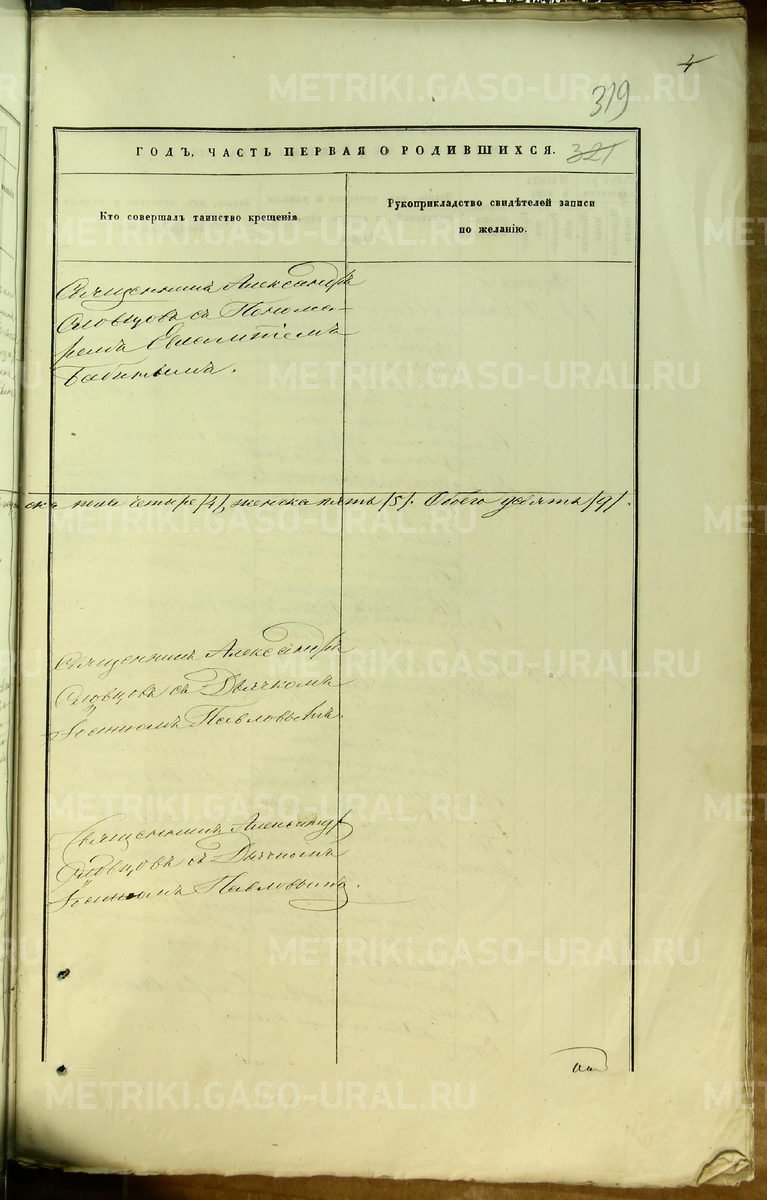 4
319
ГОДЪ, ЧАСТЬ ПЕРВАЯ О РОДИВШИХСЯ.
321
Кто совершалъ таинство крещенія.
Рукоприкладство свидѣтелей записи
по желанію.
Священникъ Александръ
Словцовъ съ Понома-
ремъ Евлампіемъ
Бабинымъ.
ска пола четыре /4/, женска пять /5/. Обоего девять /9/.
Священникъ Александръ
Словцовъ съ Дьячкомъ
Іоанномъ Павловымъ.
Священникъ Александръ
Словцовъ съ Дьячкомъ
Іоанномъ Павловымъ.
METRIKI.GASO-URAL.RU